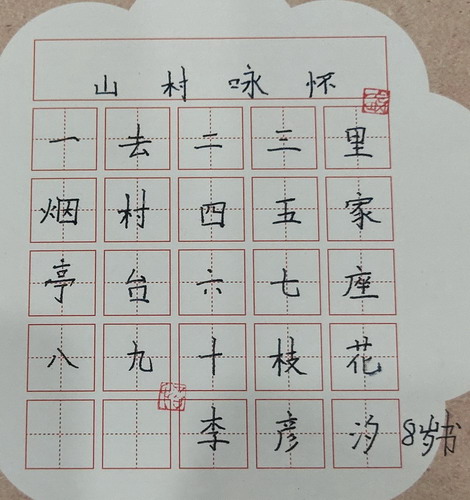 山村咏怀
一去二三里
烟村四五家
亭台六七座
八九十枝花
李彦汐 8岁书